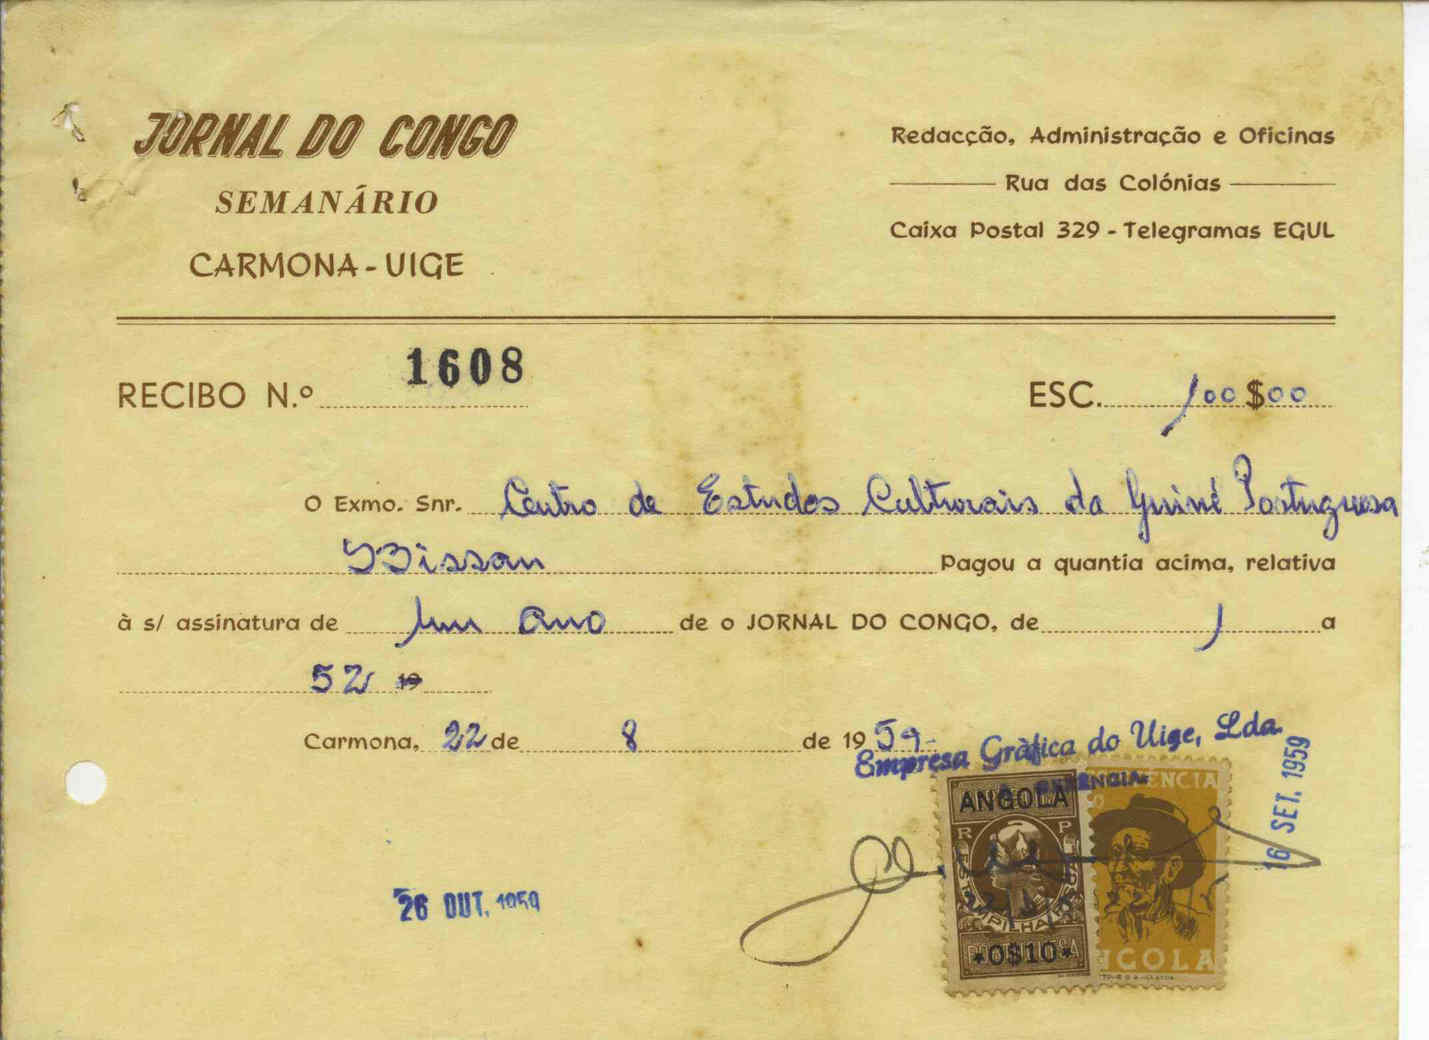 JORNAL DO CONGO
SEMANÁRIO
CARMONA - UIGE
Redacção, Administração e Oficinas
Rua das Colónias
Caixa Postal 329 - Telegramas EGUL
RECIBO N.º 1608
ESC. 100$00
O Exmo. Snr. Centro de Estudos Culturais da Guiné Portuguesa
Bissau Pagou a quantia acima, relativa
à s/ assinatura de um ano de o JORNAL DO CONGO, de 1 a
52 19
Carmona, 22 de 8 de 1959-
Empresa Gràfica do Uige, Lda.
GERENCIA
16 SET. 1959
ANGOLA
R P
*0$10*
26 OUT. 1959